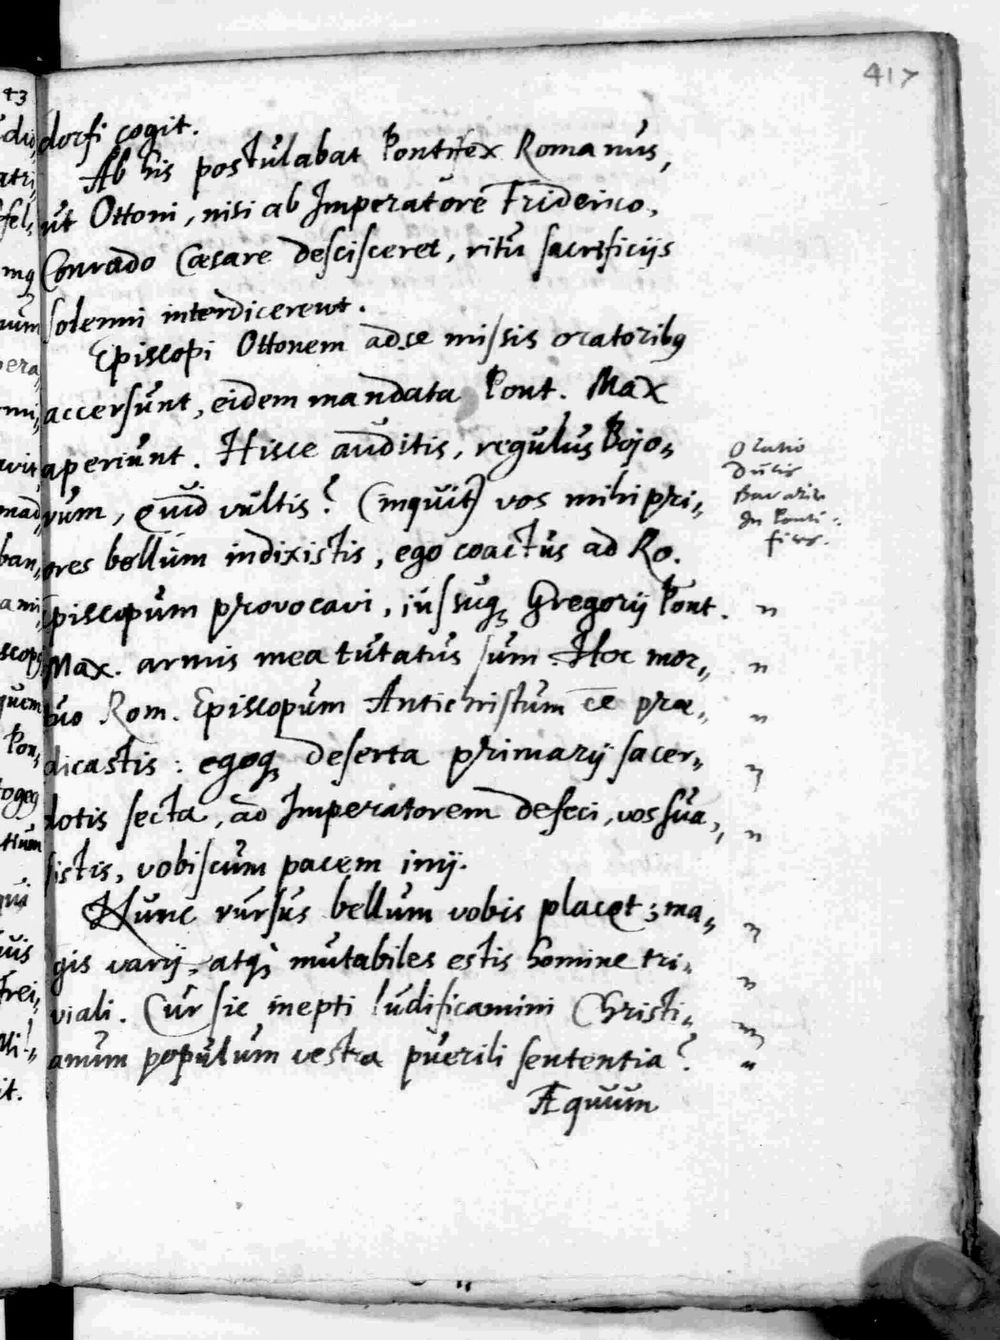 417
dorfi cogit.
Ab his postulabat Pontifex Romanus,
ut Ottoni, nisi ab Imperatore Friderico,
Conrado Cæsare descisceret, ritu sacrificijs
solenni interdicerent.
Episcopi Ottonem ad se missis oratoribꝰ
accersunt, eidem mandata Pont. Max
aperiunt. Hisce auditis, regulus Bojo„
rum, Quid vultis? (inquit) vos mihi pri„
ores bellum indixistis, ego coactus ad Ro.
Episcopum provocavi, jussuqꝫ Gregorij Pont.
Max. armis mea tutatus sum. Hoc mor„
tuo Rom. Episcopum Antichristum ēe præ„
dicastis: egoqꝫ deserta primarij sacer„
dotis secta, ad Imperatorem defeci, vos sua„
sistis, vobiscum pacem inij.
Nunc rursus bellum vobis placet; ma„
gis varij, atqꝫ mutabiles estis homine tri„
viali. Cur sic inepti ludificamini Christi„
anum populum vestra puerili sententia?
Æquum
Oratio
Ducis
Bavariæ
In Ponti„
fices.
43